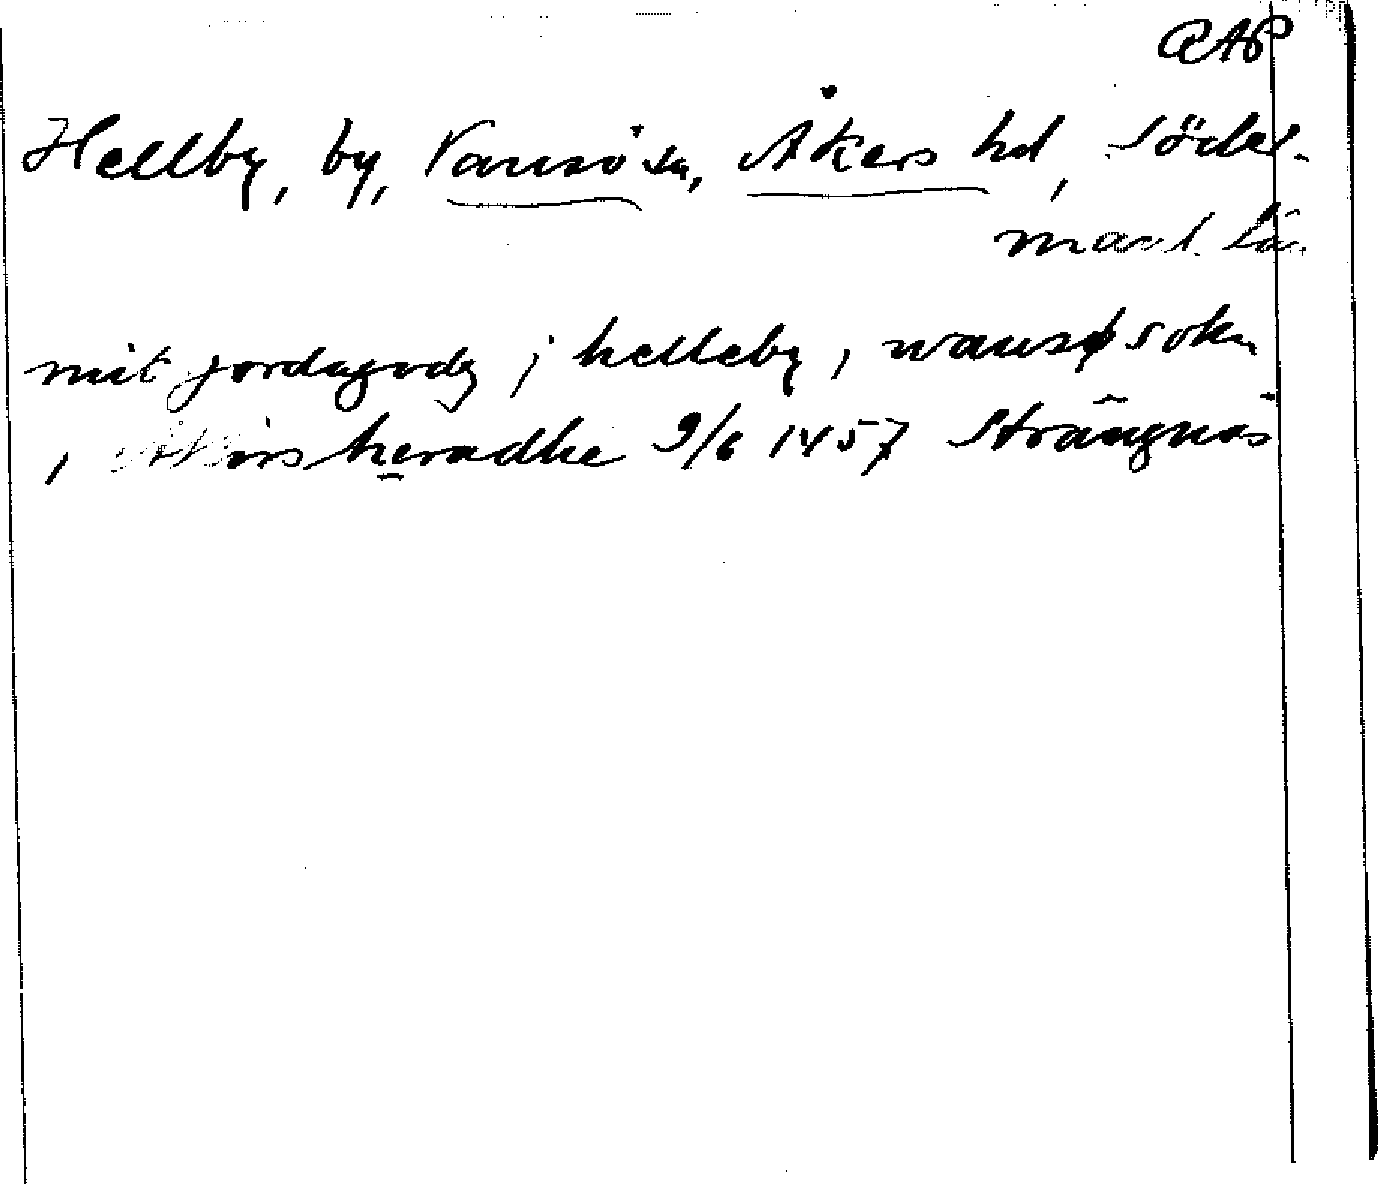 RAP
Hellby, by, Vansö sn, Åkers hd, Söder-
manl. län
mit jordagodz j helleby, wansø sokn
, Akirs heradhe 9/6 1457 Strängnäs